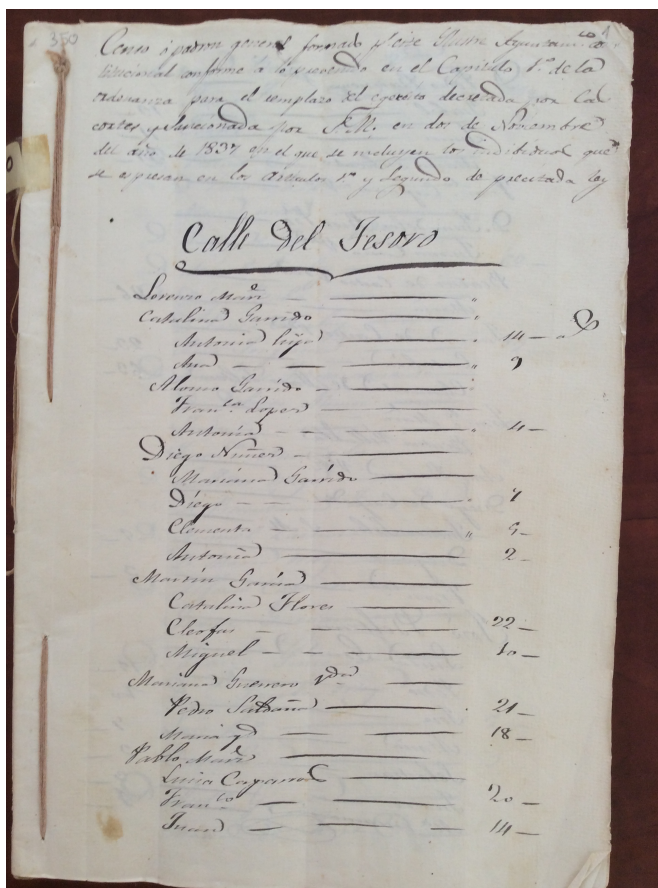 350
Censo ó padron general formado p.r este Ilustre Ayuntam.to Cons
titucional conforme a lo prevenido en el Capitulo 1.º de la
ordenanza para el remplazo del egercito decretada por las
cortes y sancionada por S.M. en dos de Noviembre
del año de 1837 en el que se incluyen los individuos que
se espresan en los Articulos 1.º y Segundo de precitada ley
Calle del Tesoro
Lorenzo
Catalina Garrido
Antonia hija 14
Ana 9
Alonso Garrido
Fran.ca Lopez
Antonia 4
Diego Nuñez
Mariana Garrido
Diego 7
Clemente 5
Antonia 2
Martin Garcia
Catalina Flores
Cleofas 22
Miguel 10
Mariana Guerrero V.da
Pedro Saldaña 21
Maria yd 18
Pablo
Lucia
Fran.co 20
Juan 14